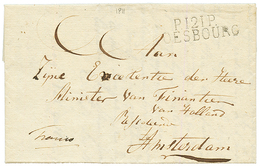 1811
P.121.P.
ESBOURG
Aan
Zijne Excellentie den Heere
Minister van Financien
van Holland
Amsterdam
Franco